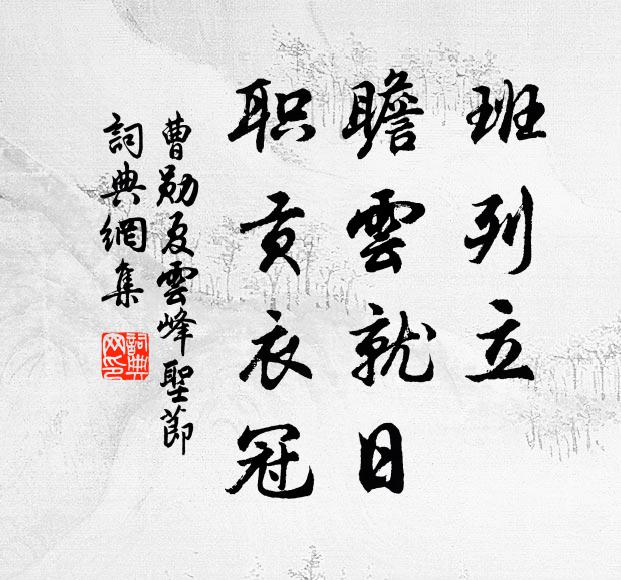 班列立
瞻雲就日
职贡衣冠
曹勋夏雲峰 聖節
詞典網集
詞典
网印